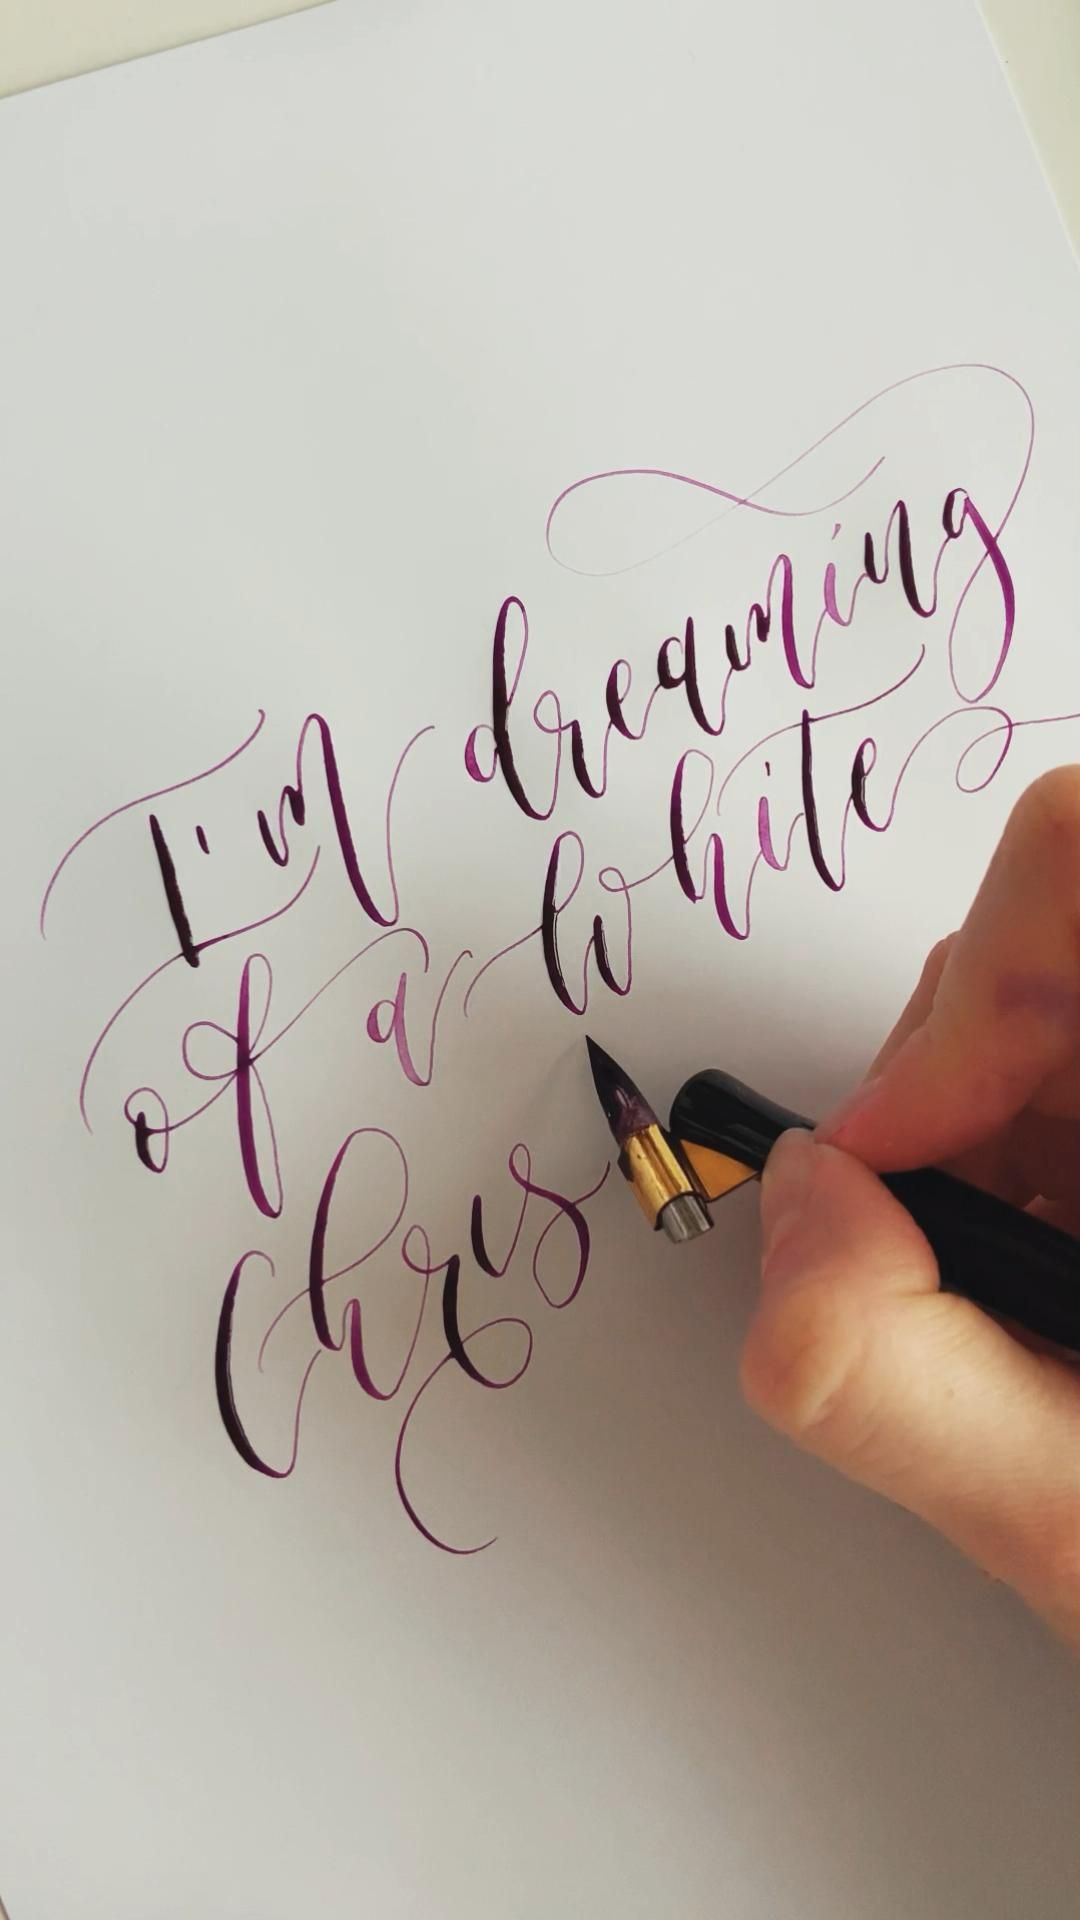 I'm dreaming
of a white
Chris